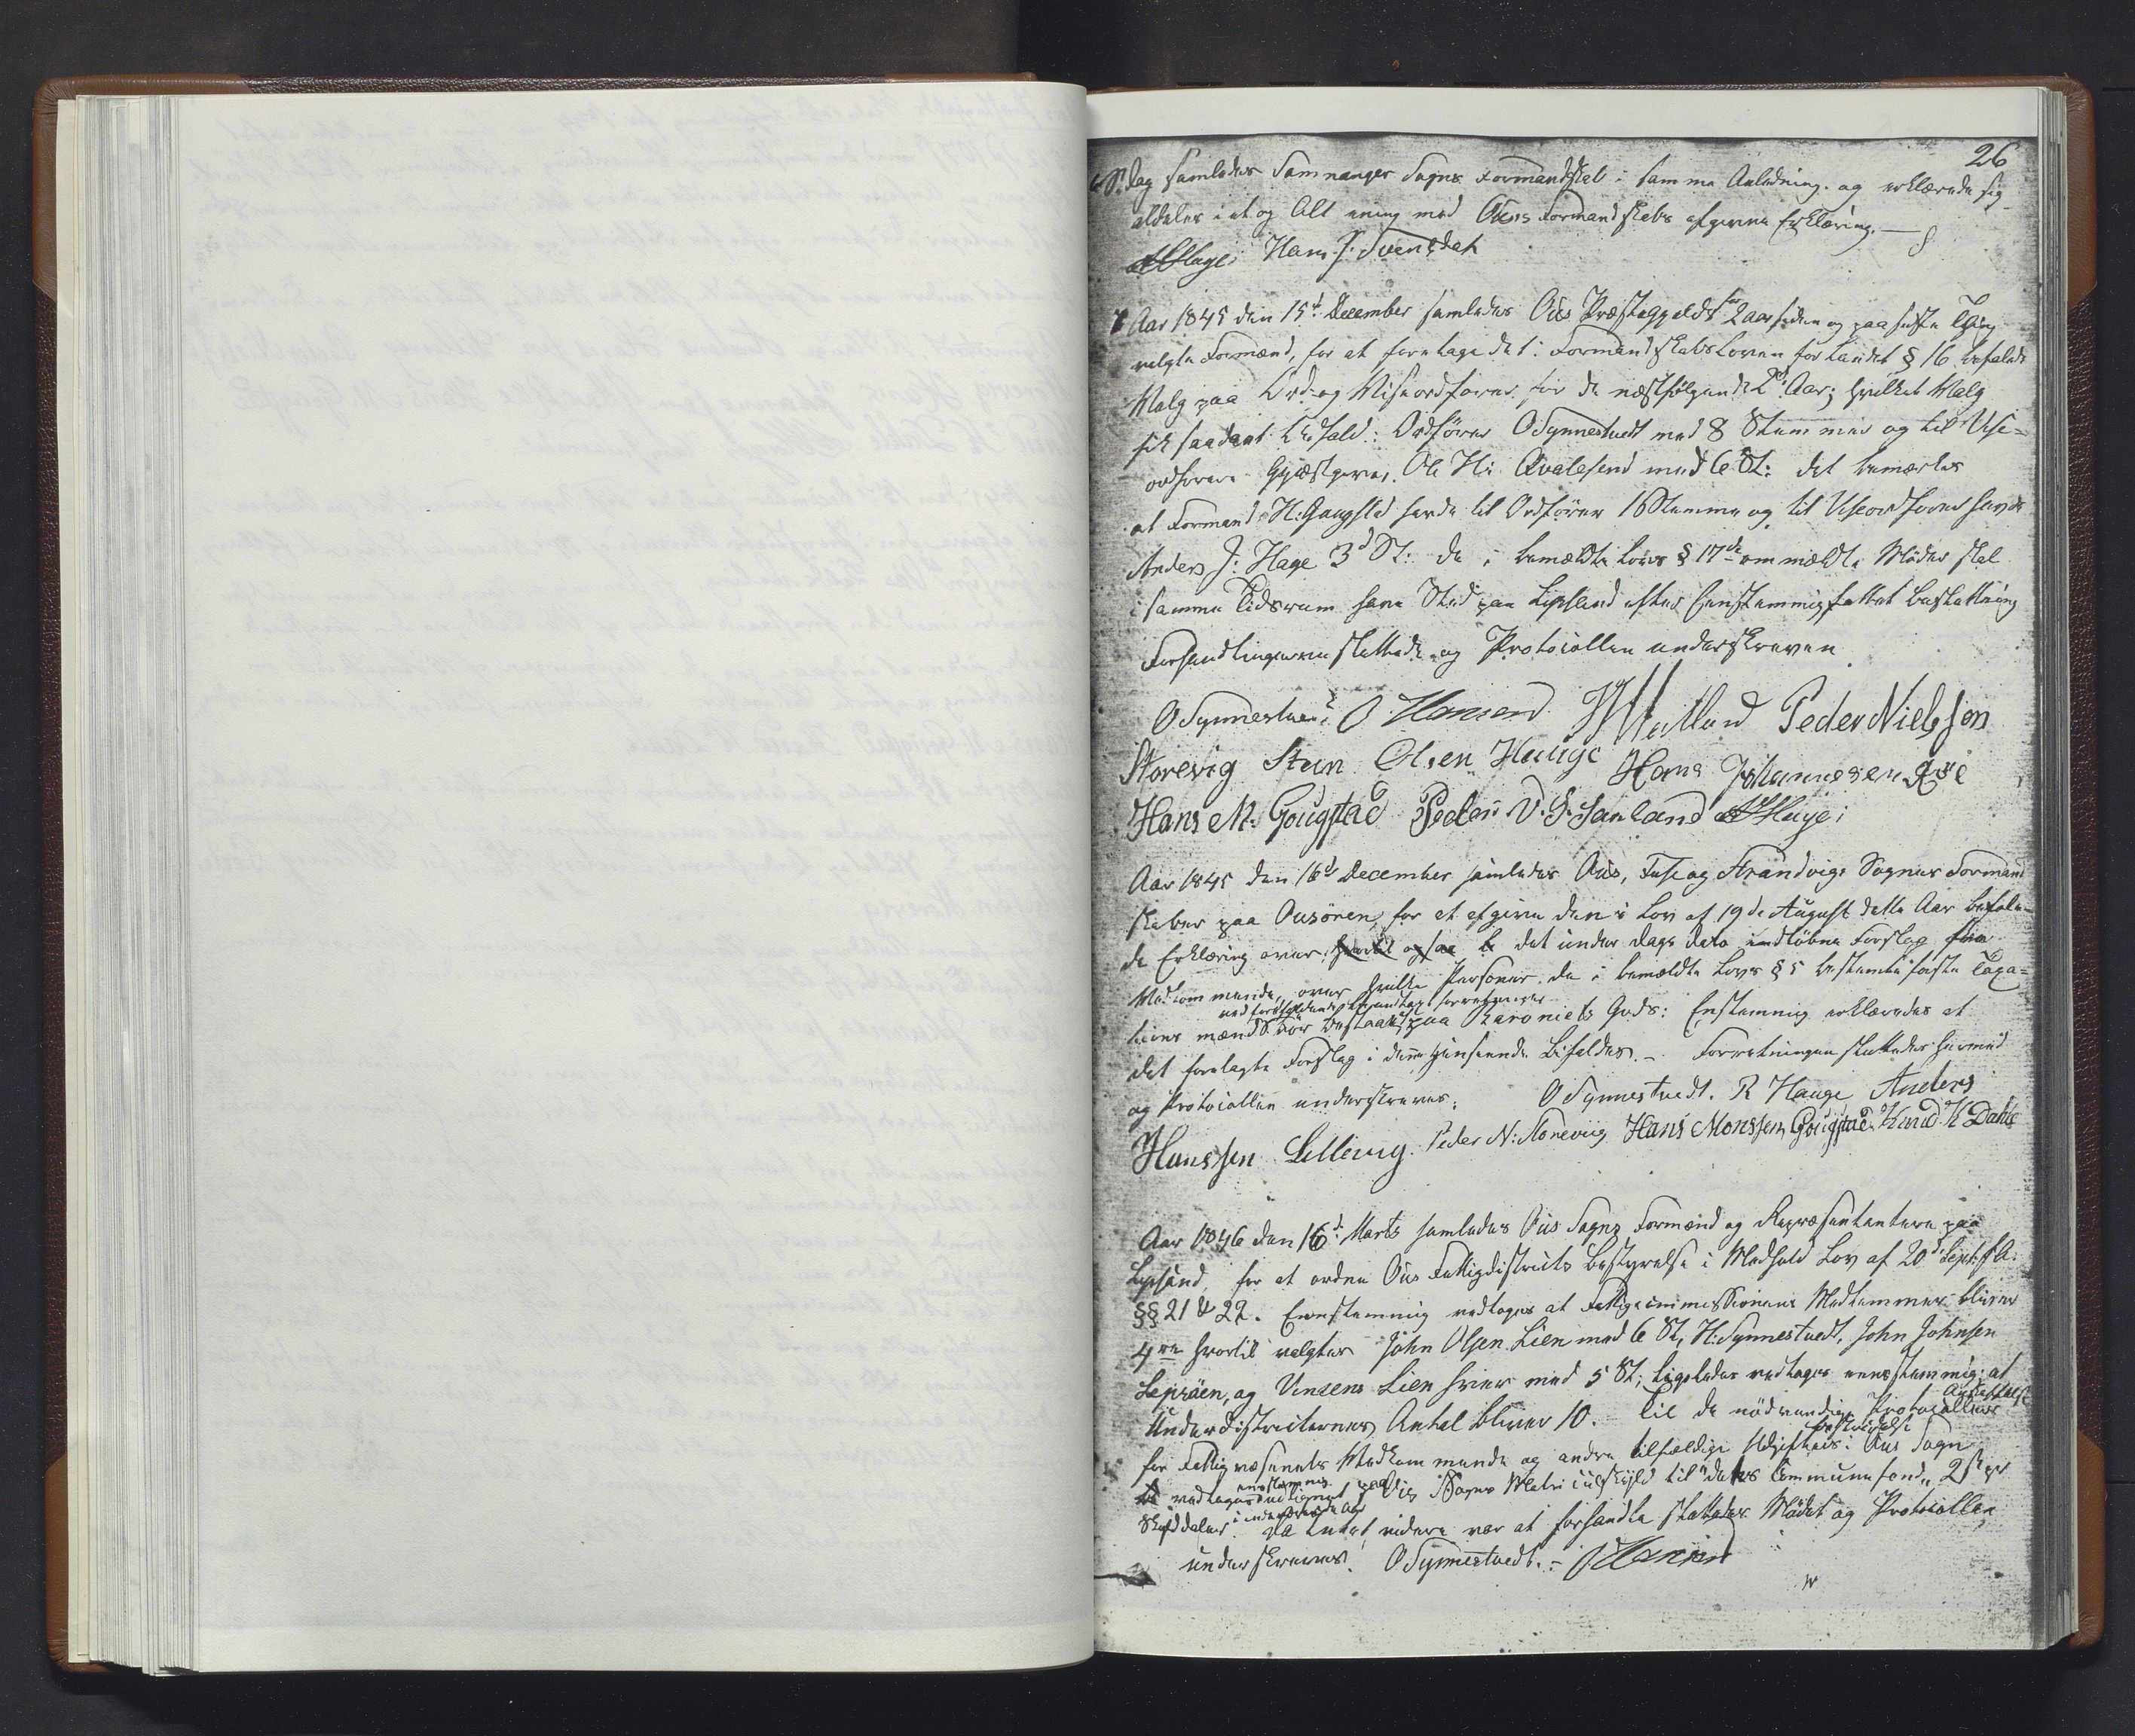 26
S. Dag samledes Samnanger Sogns Formandskab i samme Anledning, og erklærede sig
aldeles i et og Alt enig med Ous Formandskabs afgivne Erklæring. —
AJHage Hans J. Svendsdah
Aar 1845 den 15d December samledes Ous Præstegjælds for 2 aar siden og paa sidste Thing
valgte Formænd, for at foretage det i Formandskabs Loven for Landet § 16 befalede
Valg paa Ord- og Viseordfører for de næstfølgende 2de Aar; hvilket Valg
fik saadant Udfald: Ordfører OSynnestvedt med 8 Stemmer og til Vise-
ordfører Gjæstgiver Ole Hs Qvalesund med 6 St: det bemærkes
at Formand H: Gaugstad havde til Ordfører 1 Stemme og til Viseordfører havde
Anders J: Hage 3d St: de i bemældte Lovs § 17de ommældte Møder skal
i samme Tidsrum have Sted paa Lepsund efter Eenstemmig fattet Beslutning
Forhandlingerne sluttede og Protocollen underskreven
OSynnestvedt O Hansen Hatland Peder Nielssen
Storevig Sten Olsen Hauge Hans Johannesen Røe
Hans M. Gougstad Peder V. S. Sanland AJHage
Aar 1845 den 16d December samledes Ous, Fuse og Strandvigs Sognes Formand
skaber paa Ousøren, for at afgive den i Lov af 19de August dette Aar befale-
de Erklæring over hvortil ogsaa b det under Dags dato indløbne Forslag fra
Vedkommende, over hvilke Personer de i bemældte Lovs § 5 bestemte faste Taxa-
tions mænd bør bestaae, paa Baroniets Gods: Enstemmig erklæredes at
det forelagte Forslag i denne henseende bifaldes. – Forretningen sluttedes hermed
og Protocollen underskreves. OSynnestvedt. R Hauge Anders
Hanssen Lellevig Peder N: Storeviig Hans Monssen Gougstad Knud K Dahle
Aar 1846 den 16d Marts samledes Ous Sogns Formænd og Repræsentantere paa
Lepsund, for at ordne Ous Fattigdistricts Bestyrelse i Medhold Lov af 20d Septbr f. A.
§§ 21 & 22. Eenstemmig vedtoges at Fattigcommissionens Medlemmer bliver
4re hvortil valgtes John Olsen Lien med 6 St, H: Synnestvedt, John Johnsen
Lepsøen, og Vinzens Lien hver med 5 St; ligeledes vedtoges eenstemmig: at
Underdistricternes Antal bliver 10. – Til de nødvendige Protocollers Anskaffelse
for Fattigvæsenets Vedkommende og andre tilfældige Udgifters Bestridelse i Ous Sogn
vedtoges eenstemmig udlignet paa Ous Sogns Matriculskyld til dettes Communefond 2 s pr
Skylddaler i indeværende Aar. Da Intet videre var at forhandle sluttedes Mødet og Protocollen
underskreves. OSynnestvedt. – OHansen